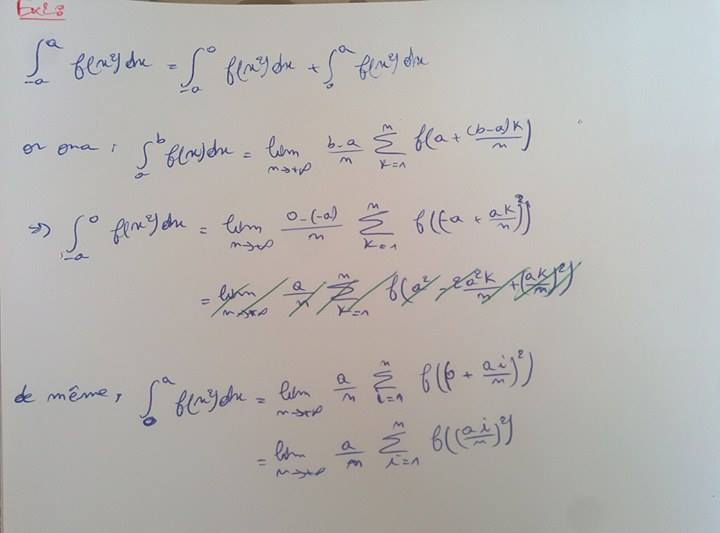 Ex2:
∫_{-a}^{a} f(x²)dx = ∫_{-a}^{0} f(x²)dx + ∫_{0}^{a} f(x²)dx
or ona : ∫_{a}^{b} f(x)dx = lim_{n→+∞} \frac{b-a}{n} ∑_{k=1}^{n} f(a + \frac{(b-a)k}{n})
⇒ ∫_{-a}^{0} f(x²)dx = lim_{n→+∞} \frac{0-(-a)}{n} ∑_{k=1}^{n} f((-a + \frac{ak}{n})²)
= lim_{n→+∞} \frac{a}{n} ∑_{k=1}^{n} f(a² - \frac{2a²k}{n} + (\frac{ak}{n})²)
de même, ∫_{0}^{a} f(x²)dx = lim_{n→+∞} \frac{a}{n} ∑_{i=1}^{n} f((0 + \frac{ai}{n})²)
= lim_{n→+∞} \frac{a}{n} ∑_{i=1}^{n} f((\frac{ai}{n})²)